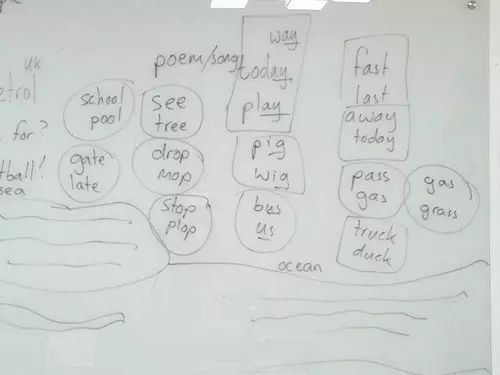 UK
poem/song
school
pool
gate
late
for?
sea
see
tree
drop
mop
stop
plop
way
today
play
pig
wig
bus
us
fast
last
away
today
pass
gas
gas
grass
truck
duck
ocean